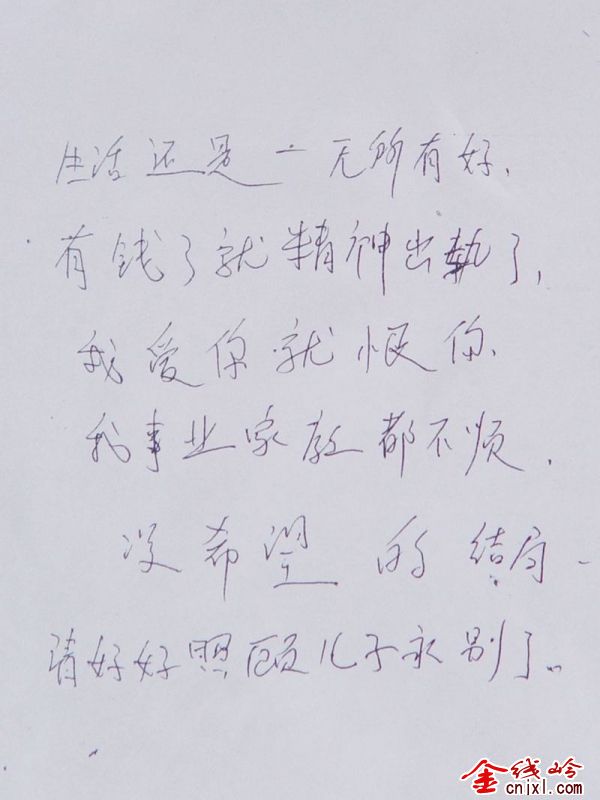 生活还是一无所有好.
有钱了就精神出轨了,
我爱你就恨你.
我事业家庭都不顺.
没希望的结局.
请好好照顾儿子永别了..
金线岭
cnjxl.com